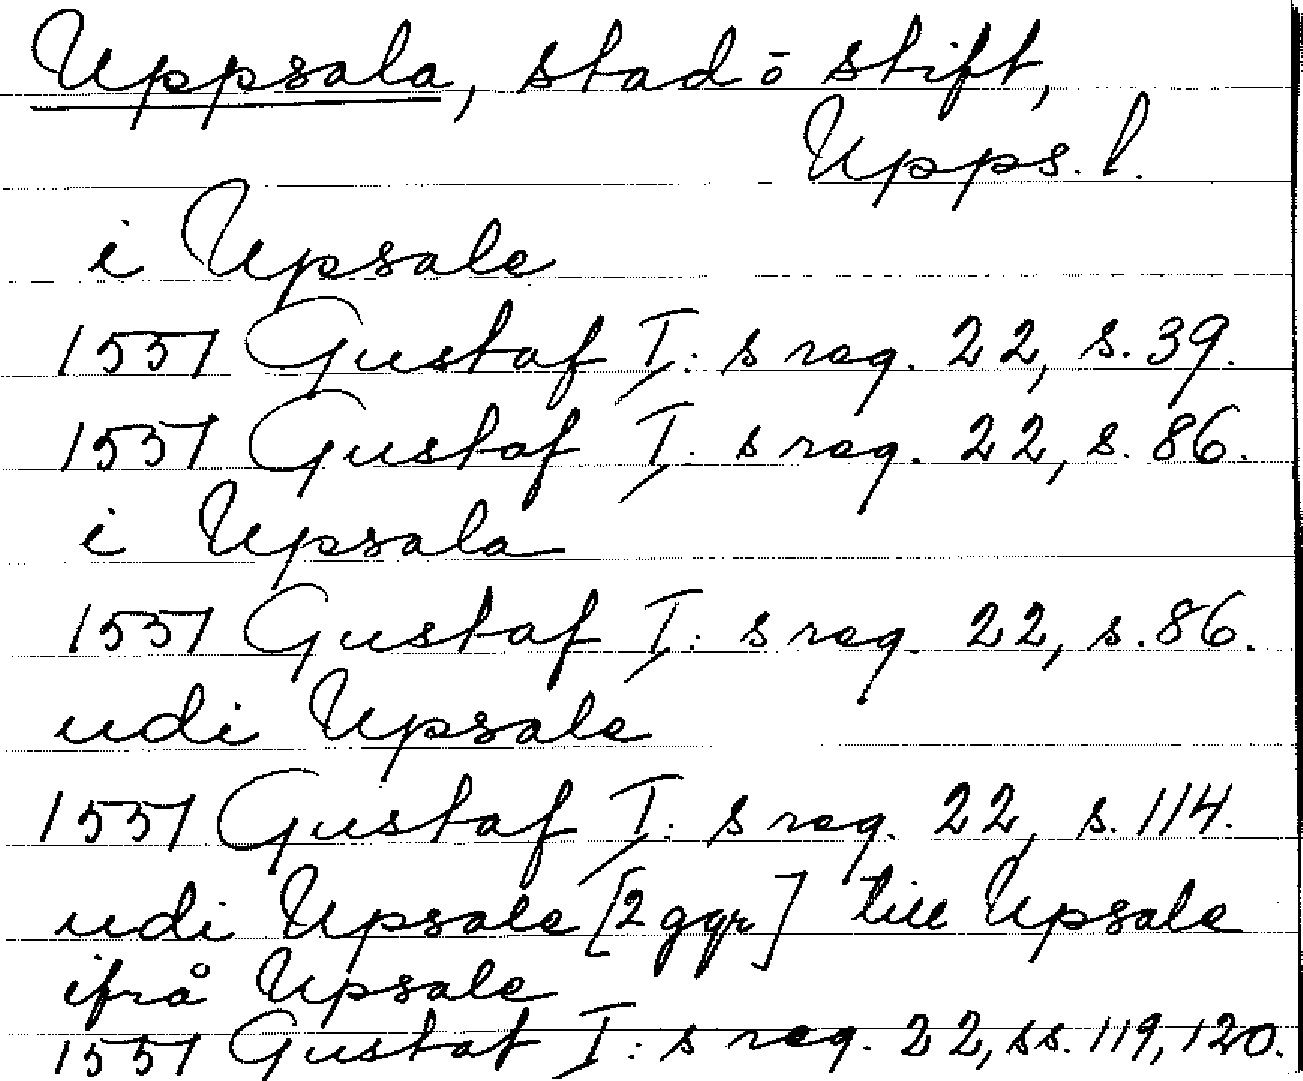 Uppsala, stad o stift,
Upps. l.
i Upsale
1551 Gustaf I:s reg. 22, s. 39.
1551 Gustaf I:s reg. 22, s. 86.
i Upsala
1551 Gustaf I:s reg. 22, s. 86.
udi Upsale
1551 Gustaf I:s reg. 22, s. 114.
udi Upsale [2 ggr] till Upsale
ifrå Upsale
1551 Gustaf I:s reg. 22, ss. 119, 120.